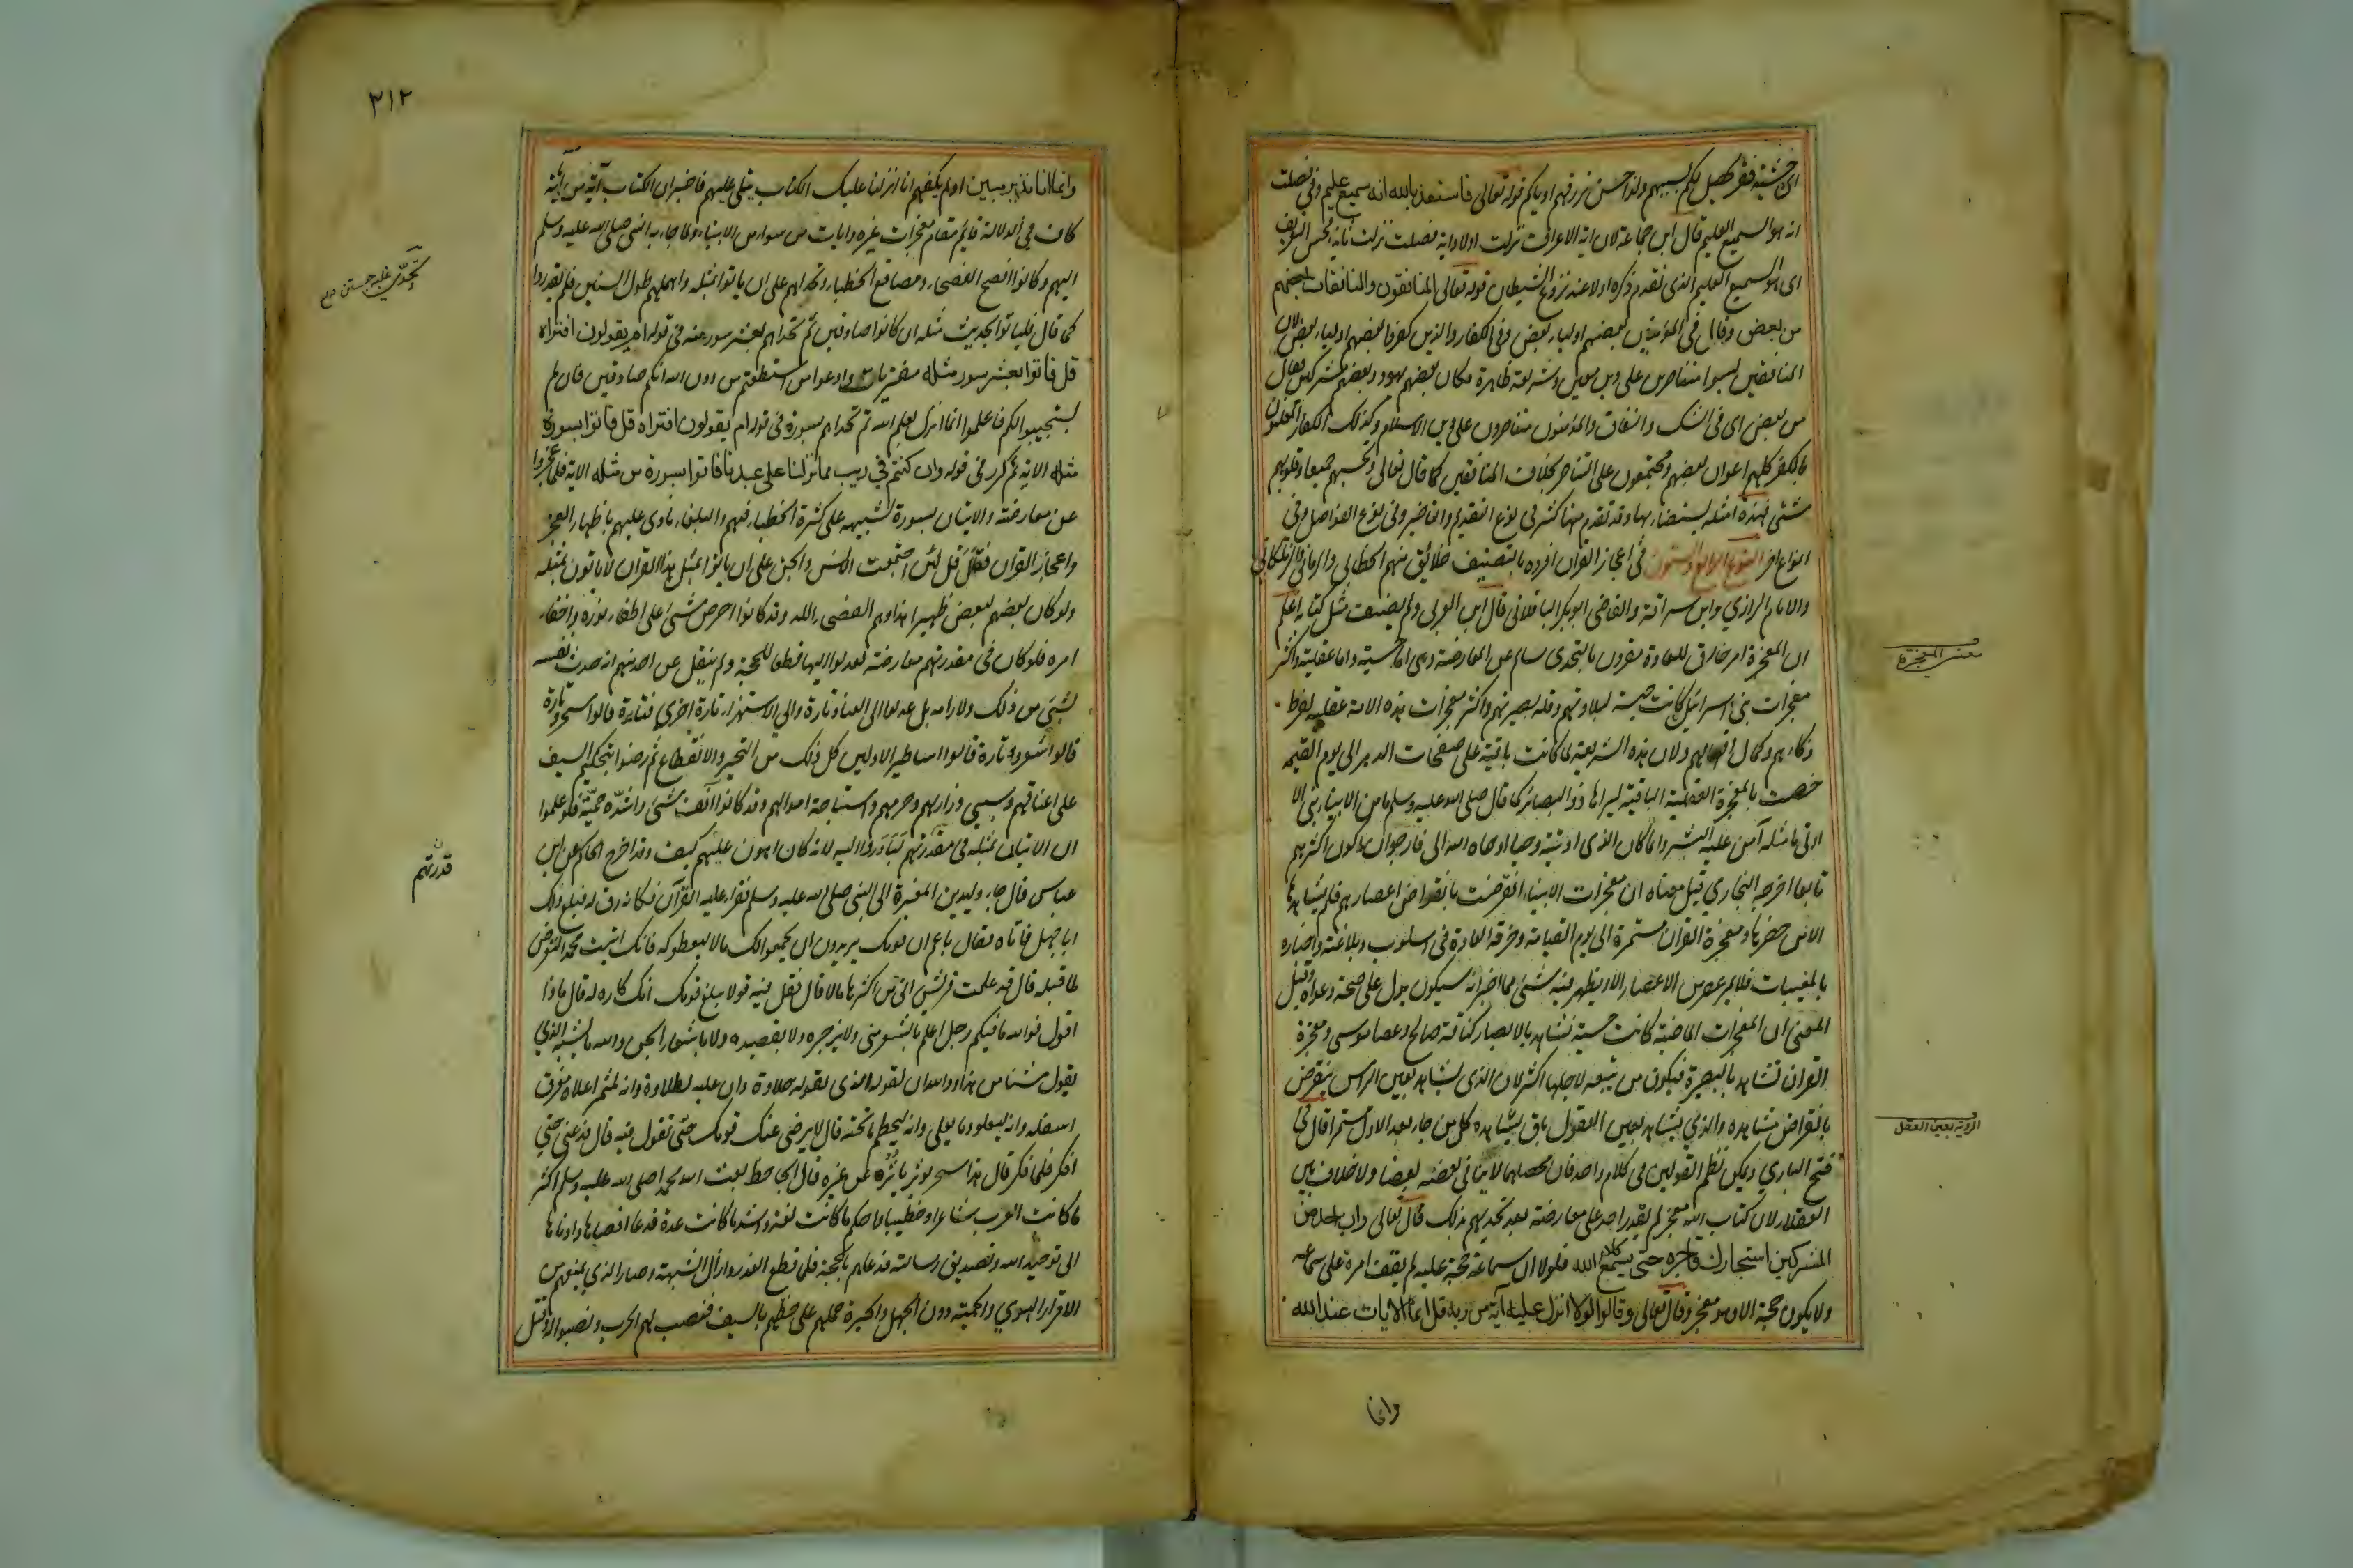 اى خشية فقر يحصل لكم بسببهم ولذا حسن نرزقهم واياكم قوله تعالى فاستعذ بالله انه سميع عليم وفى فصلت
انه هو السميع العليم قال ابن جماعة لان اية الاعراف نزلت اولا واية فصلت نزلت ثانيا فحسن التعريف
اى هو السميع العليم الذى تقدم ذكره اولا عند نزوغ الشيطان قوله تعالى المنافقون والمنافقات بعضهم
من بعض وقال فى المؤمنين بعضهم اولياء بعض وفى الكفار والذين كفروا بعضهم اولياء بعض لان
المنافقين ليسوا متناصرين على دين معين وشريعة ظاهرة فكان بعضهم يهود وبعضهم مشركين فقال
من بعض اى فى الشك والنفاق والمؤمنون متناصرون على دين الاسلام وكذلك الكفار المعلنون
بالكفر كلهم اعوان بعضهم ومجتمعون على التناصر بخلاف المنافقين كما قال تعالى تحسبهم جميعا وقلوبهم
شتى فهذه امثلة يستضاء بها وقد تقدم منها كثير فى نوع التقديم والتاخير وفى نوع الفواصل وفى
انواع اخر النوع الرابع والستون فى اعجاز القران افرده بالتصنيف خلائق منهم الخطابى والرمانى والزملكانى
والامام الرازي وابن سراقة والقاضى ابوبكر الباقلانى قال ابن العربى ولم يصنف مثل كتابه اعلم
ان المعجزة امر خارق للعادة مقرون بالتحدى سالم عن المعارضة وهى اما حسية واما عقلية واكثر
معجزات بنى اسرائيل كانت حسية لبلادتهم وقلة بصيرتهم واكثر معجزات هذه الامة عقلية لفرط
ذكائهم وكمال افهامهم ولان هذه الشريعة لما كانت باقية على صفحات الدهر الى يوم القيمة
خصت بالمعجزة العقلية الباقية ليراها ذوا البصائر كما قال صلى الله عليه وسلم ما من الانبياء نبى الا
اوتى ما مثله آمن عليه البشر وانما كان الذى اوتيته وحيا اوحاه الله الى فارجوان اكون اكثرهم
تابعا اخرجه البخاري قيل معناه ان معجزات الانبياء انقرضت بانقراض اعصارهم فلم يشاهدها
الا من حضرها ومعجزة القران مستمرة الى يوم القيامة وخرقه العادة فى اسلوبه وبلاغته واخباره
بالمغيبات فلا يمر عصر من الاعصار الا ويظهر فيه شئ مما اخبر انه سيكون يدل على صحة دعواه وقيل
المعنى ان المعجزات الماضية كانت حسية تشاهد بالابصار كناقة صالح وعصا موسى ومعجزة
القران تشاهد بالبصيرة فيكون من يتبعه لاجلها اكثر لان الذى يشاهد بعين الراس ينقرض
بانقراض مشاهده والذي يشاهد بعين العقول باق يشاهده كل من جاء بعد الاول مستمرا قال فى
فتح الباري ويمكن نظم القولين فى كلام واحد فان محصلهما لاينافى بعضه بعضا ولا خلاف بين
العقلاء لان كتاب الله معجز لم يقدر احد على معارضته بعد تحديهم بذلك قال تعالى وان احد من
المشركين استجارك فاجره حتى يسمع كلام الله فلولا ان سماعه حجة عليه لم يقف امره على سماعه
ولايكون حجة الا وهو معجز وقال تعالى وقالوا لولا انزل عليه آية من ربه قل انما الايات عند الله
وانما
معنى المعجزة
الروية بعين العقل
٢١٢
وانما انا نذير مبين اولم يكفهم انا انزلنا عليك الكتاب يتلى عليهم فاخبر ان الكتاب آية من آياته
كاف فى الدلالة قايم مقام معجزات غيره وايات من سواه من الانبياء ولما جاء به النبى صلى الله عليه وسلم
اليهم وكانوا افصح الفصحاء ومصاقع الخطباء وتحداهم على ان ياتوا بمثله وامهلهم طول السنين فلم يقدروا
كما قال فلياتوا بحديث مثله ان كانوا صادقين ثم تحداهم بعشر سور منه فى قوله ام يقولون افتراه
قل فاتوا بعشر سور مثله مفتريات وادعوا من استطعتم من دون الله ان كنتم صادقين فان لم
يستجيبوا لكم فاعلموا انما انزل بعلم الله ثم تحداهم بسورة فى قوله ام يقولون افتراه قل فاتوا بسورة
مثله الاية ثم كرر فى قوله وان كنتم في ريب مما نزلنا على عبدنا فاتوا بسورة من مثله الاية فلما عجزوا
عن معارضته والاتيان بسورة تشبهه على كثرة الخطباء فيهم والبلغاء نادى عليهم باظهار العجز
واعجاز القران فقال قل لئن اجتمعت الانس والجن على ان ياتوا بمثل هذا القران لا ياتون بمثله
ولو كان بعضهم لبعض ظهيرا هذا وهم الفصحاء اللد وقد كانوا احرص شئ على اطفاء نوره واخفاء
امره فلو كان فى مقدرتهم معارضته لعدلوا اليها قطعا للحجة ولم ينقل عن احد منهم انه حدث نفسه
بشئ من ذلك ولا رامه بل عدلوا الى العناد تارة والى الاستهزاء تارة اخرى فتارة قالوا سحر وتارة
قالوا شعر وتارة قالوا اساطير الاولين كل ذلك من التحير والانقطاع ثم رضوا بتحكيم السيف
على اعناقهم وسبى ذراريهم وحرمهم واستباحة اموالهم وقد كانوا آنف شئ واشده حمية فلو علموا
ان الاتيان بمثله فى مقدرتهم لبادروا اليه لانه كان اهون عليهم كيف وقد اخرج الحاكم عن ابن
عباس قال جاء وليد بن المغيرة الى النبى صلى الله عليه وسلم فقرا عليه القرآن فكانه رق له فبلغ ذلك
ابا جهل فاتاه فقال يا عم ان قومك يريدون ان يجمعوا لك مالا ليعطوكه فانك اتيت محمدا لتعرض
لما قبله قال قد علمت قريش انى من اكثرها مالا قال فقل فيه قولا يبلغ قومك انك كاره له قال ماذا
اقول فوالله ما فيكم رجل اعلم بالشعر منى ولا برجزه ولا بقصيده ولا باشعار الجن والله ما يشبه الذي
يقول شيئا من هذا ووالله ان لقوله الذى يقوله حلاوة وان عليه لطلاوة وانه لمثمر اعلاه مغرق
اسفله وانه ليعلو وما يعلى وانه ليحطم ما تحته قال لا يرضى عنك قومك حتى تقول فيه قال فدعنى حتى
افكر فلما فكر قال هذا سحر يوثر ياثره عن غيره قال الجاحظ بعث الله محمدا صلى الله عليه وسلم اكثر
ما كانت العرب شاعرا وخطيبا واحكم ما كانت لغة واشد ما كانت عدة فدعا اقصاها وادناها
الى توحيد الله وتصديق رسالته فدعاهم بالحجة فلما قطع العذر وازال الشبهة وصار الذي يمنعهم من
الاقرار الهوي والحمية دون الجهل والحيرة حملهم على حظهم بالسيف فنصب لهم الحرب ونصبوا له وقتل
قدرتهم